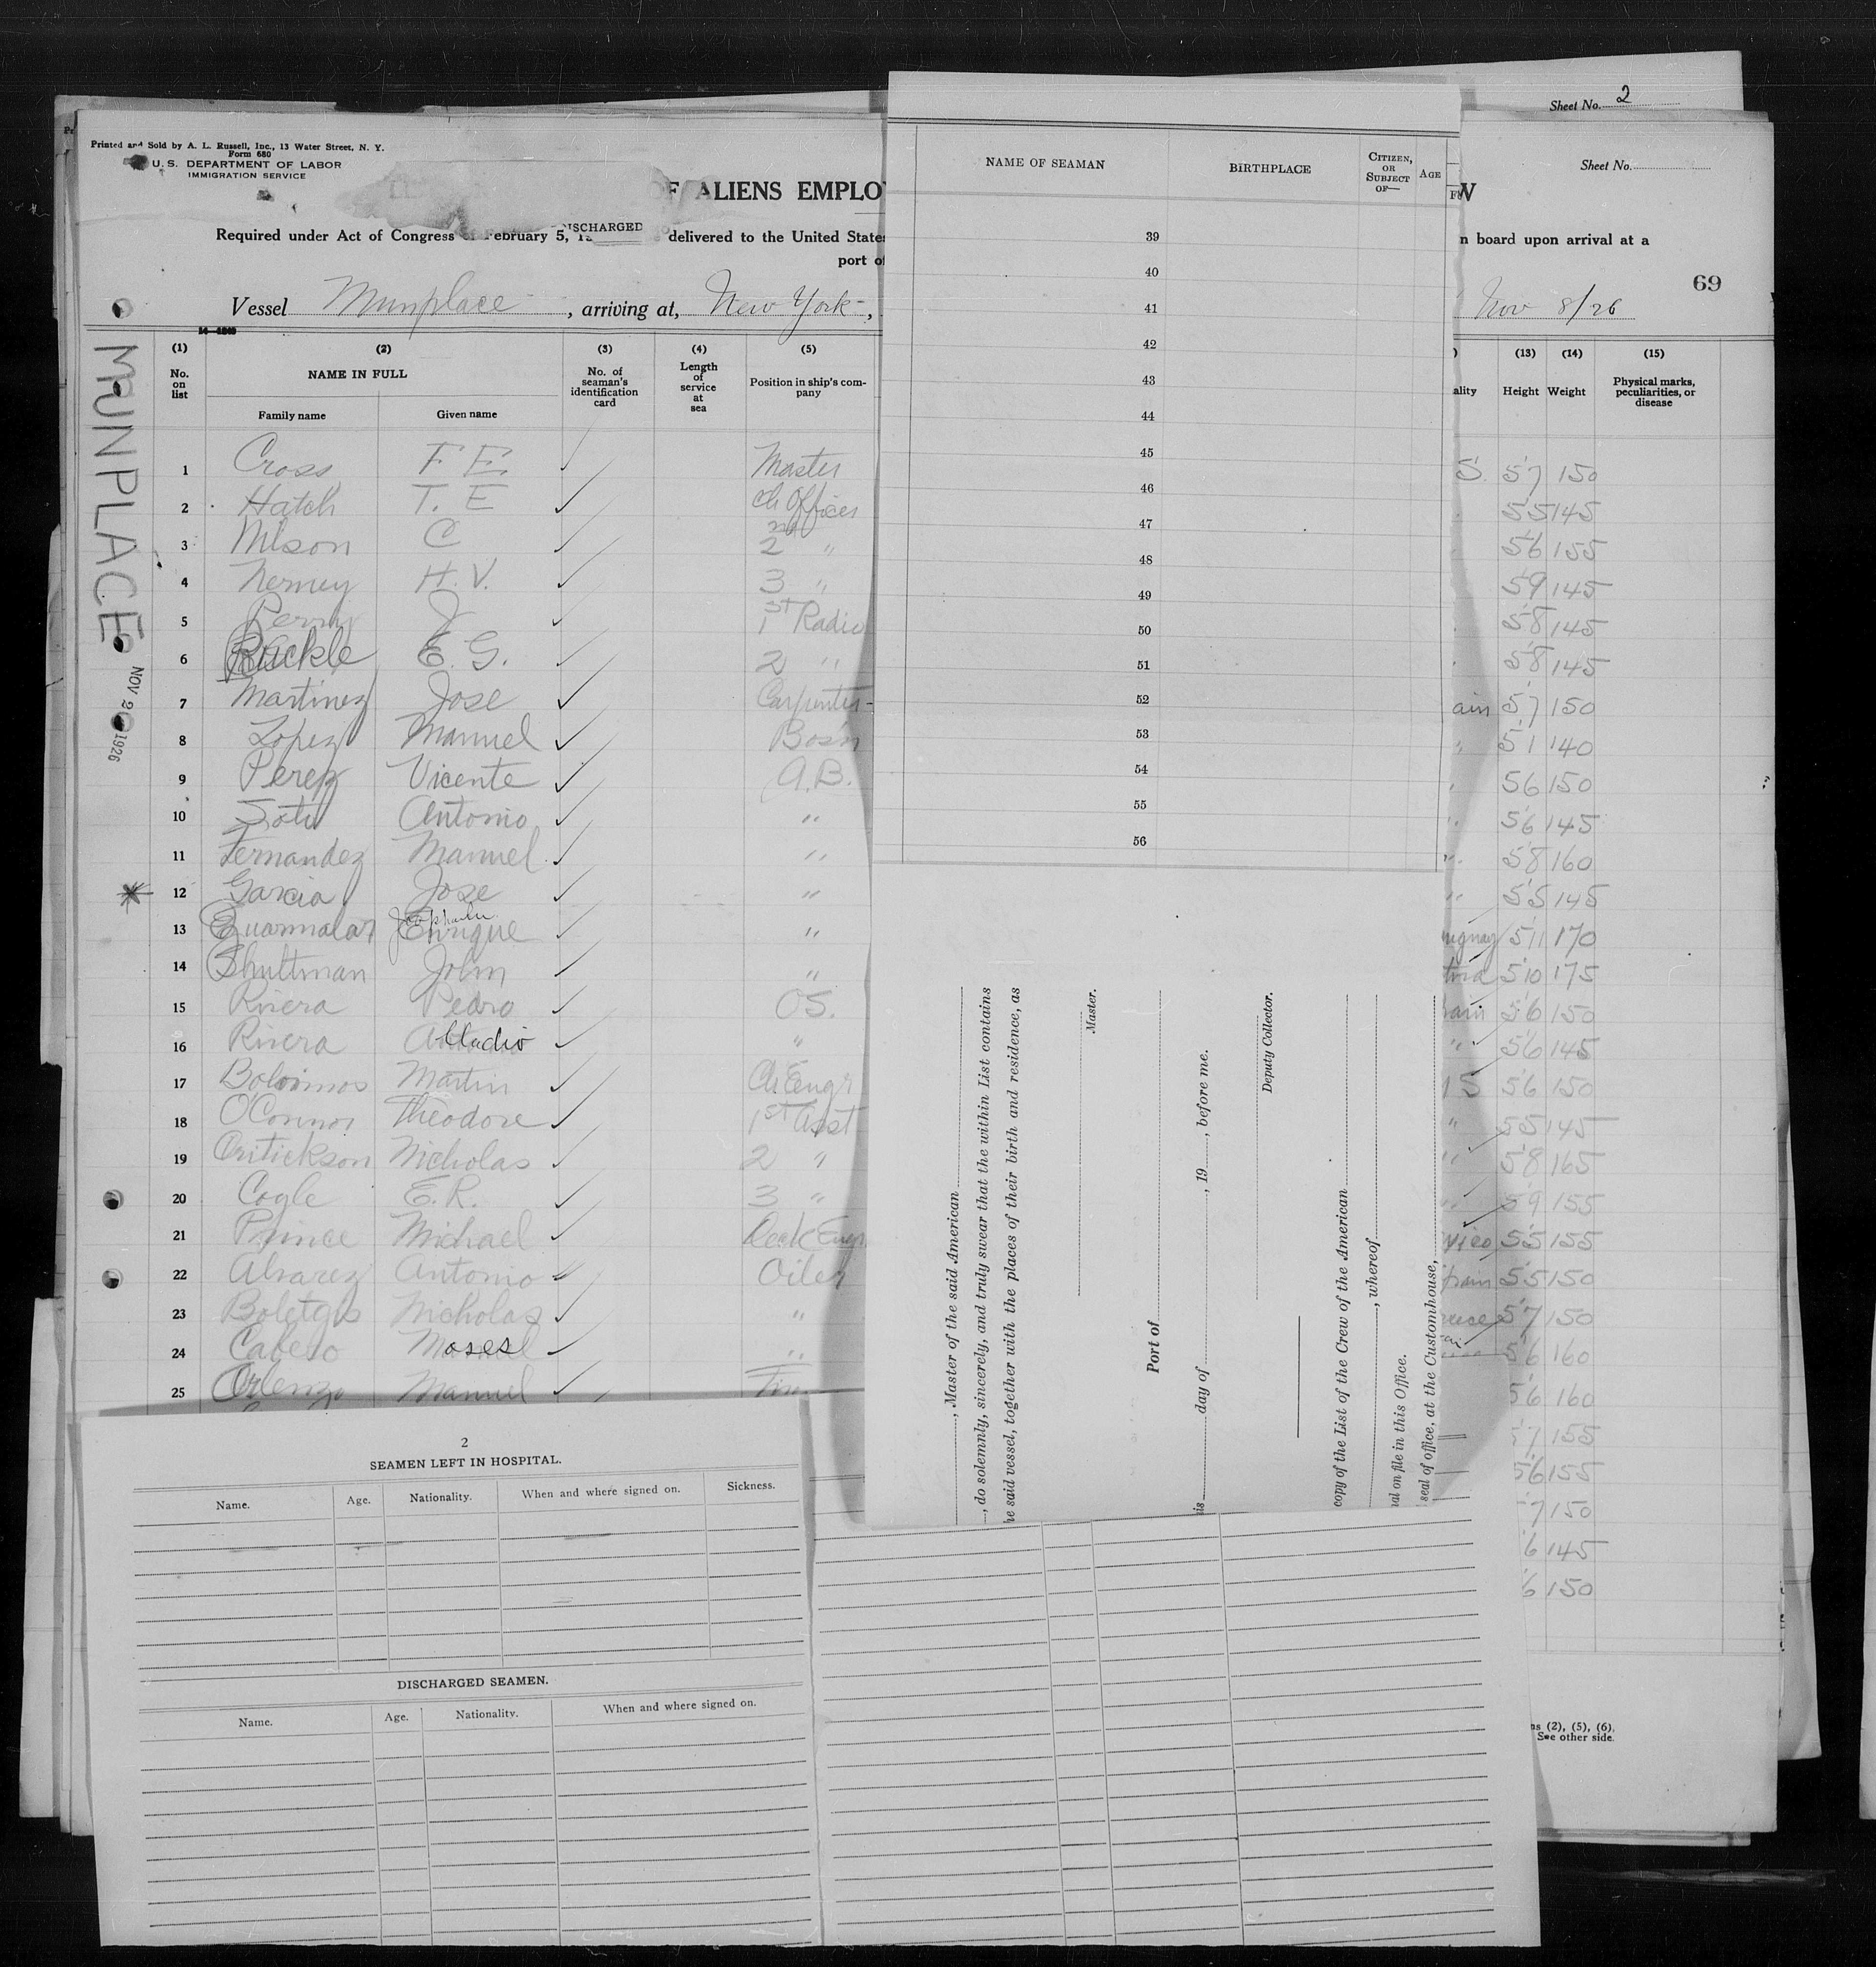 Sheet No. 2
Printed and Sold by A. L. Russell, Inc., 13 Water Street, N. Y.
Form 680
U. S. DEPARTMENT OF LABOR
IMMIGRATION SERVICE
Sheet No.
OF ALIENS EMPLO
W
DISCHARGED
Required under Act of Congress of February 5, delivered to the United State
n board upon arrival at a
port of
69
Vessel Munplace, arriving at, New York, Nov 8/26
MUNPLACE
NOV 20 1926
(1) (2) (3) (4) (5) (13) (14) (15)
No. on list
NAME IN FULL
Family name Given name
No. of seaman's identification card
Length of service at sea
Position in ship's company
ality Height Weight
Physical marks, peculiarities, or disease
1 Cross F E. Master S. 5'7 150
2 Hatch T. E Ch Officer 5'5 145
3 Nilson C 2nd " 5'6 155
4 Nerney H. V. 3 " 5'9 145
5 Perry J 1st Radio 5'8 145
6 Rackle E. G. 2 " 5'8 145
7 Martinez Jose Carpenter ain 5'7 150
8 Lopez Manuel Bos'n " 5'1 140
9 Perez Vicente A.B. 5'6 150
10 Soto Antonio " 5'6 145
11 Fernandez Manuel " 5'8 160
12 Garcia Jose " 5'5 145
13 Enrique " 5'11 170
14 Shultman John " 5'10 175
15 Rivera Pedro OS. ain 5'6 150
16 Rivera " 5'6 145
17 Martin Ch Engr S 5'6 150
18 O'Connor Theodore 1st Asst " 5'5 145
19 Nicholas 2 " 5'8 165
20 Cogle E. R. 3 " 5'9 155
21 Prince Michael Deck Engr 5'5 155
22 Alvarez Antonio Oiler 5'5 150
23 Nicholas " 5'7 150
24 Moses " 5'6 160
25 Manuel 5'6 160
7 155
5'6 155
7 150
6 145
6 150
NAME OF SEAMAN
BIRTHPLACE
CITIZEN, OR SUBJECT OF—
AGE
39
40
41
42
43
44
45
46
47
48
49
50
51
52
53
54
55
56
, Master of the said American
, do solemnly, sincerely, and truly swear that the within List contains
he said vessel, together with the places of their birth and residence, as
Master.
Port of
is day of , 19 , before me.
Deputy Collector.
copy of the List of the Crew of the American
, whereof
nal on file in this Office.
seal of office, at the Customhouse,
2
SEAMEN LEFT IN HOSPITAL.
Name. Age. Nationality. When and where signed on. Sickness.
DISCHARGED SEAMEN.
Name. Age. Nationality. When and where signed on.
ns (2), (5), (6).
See other side.